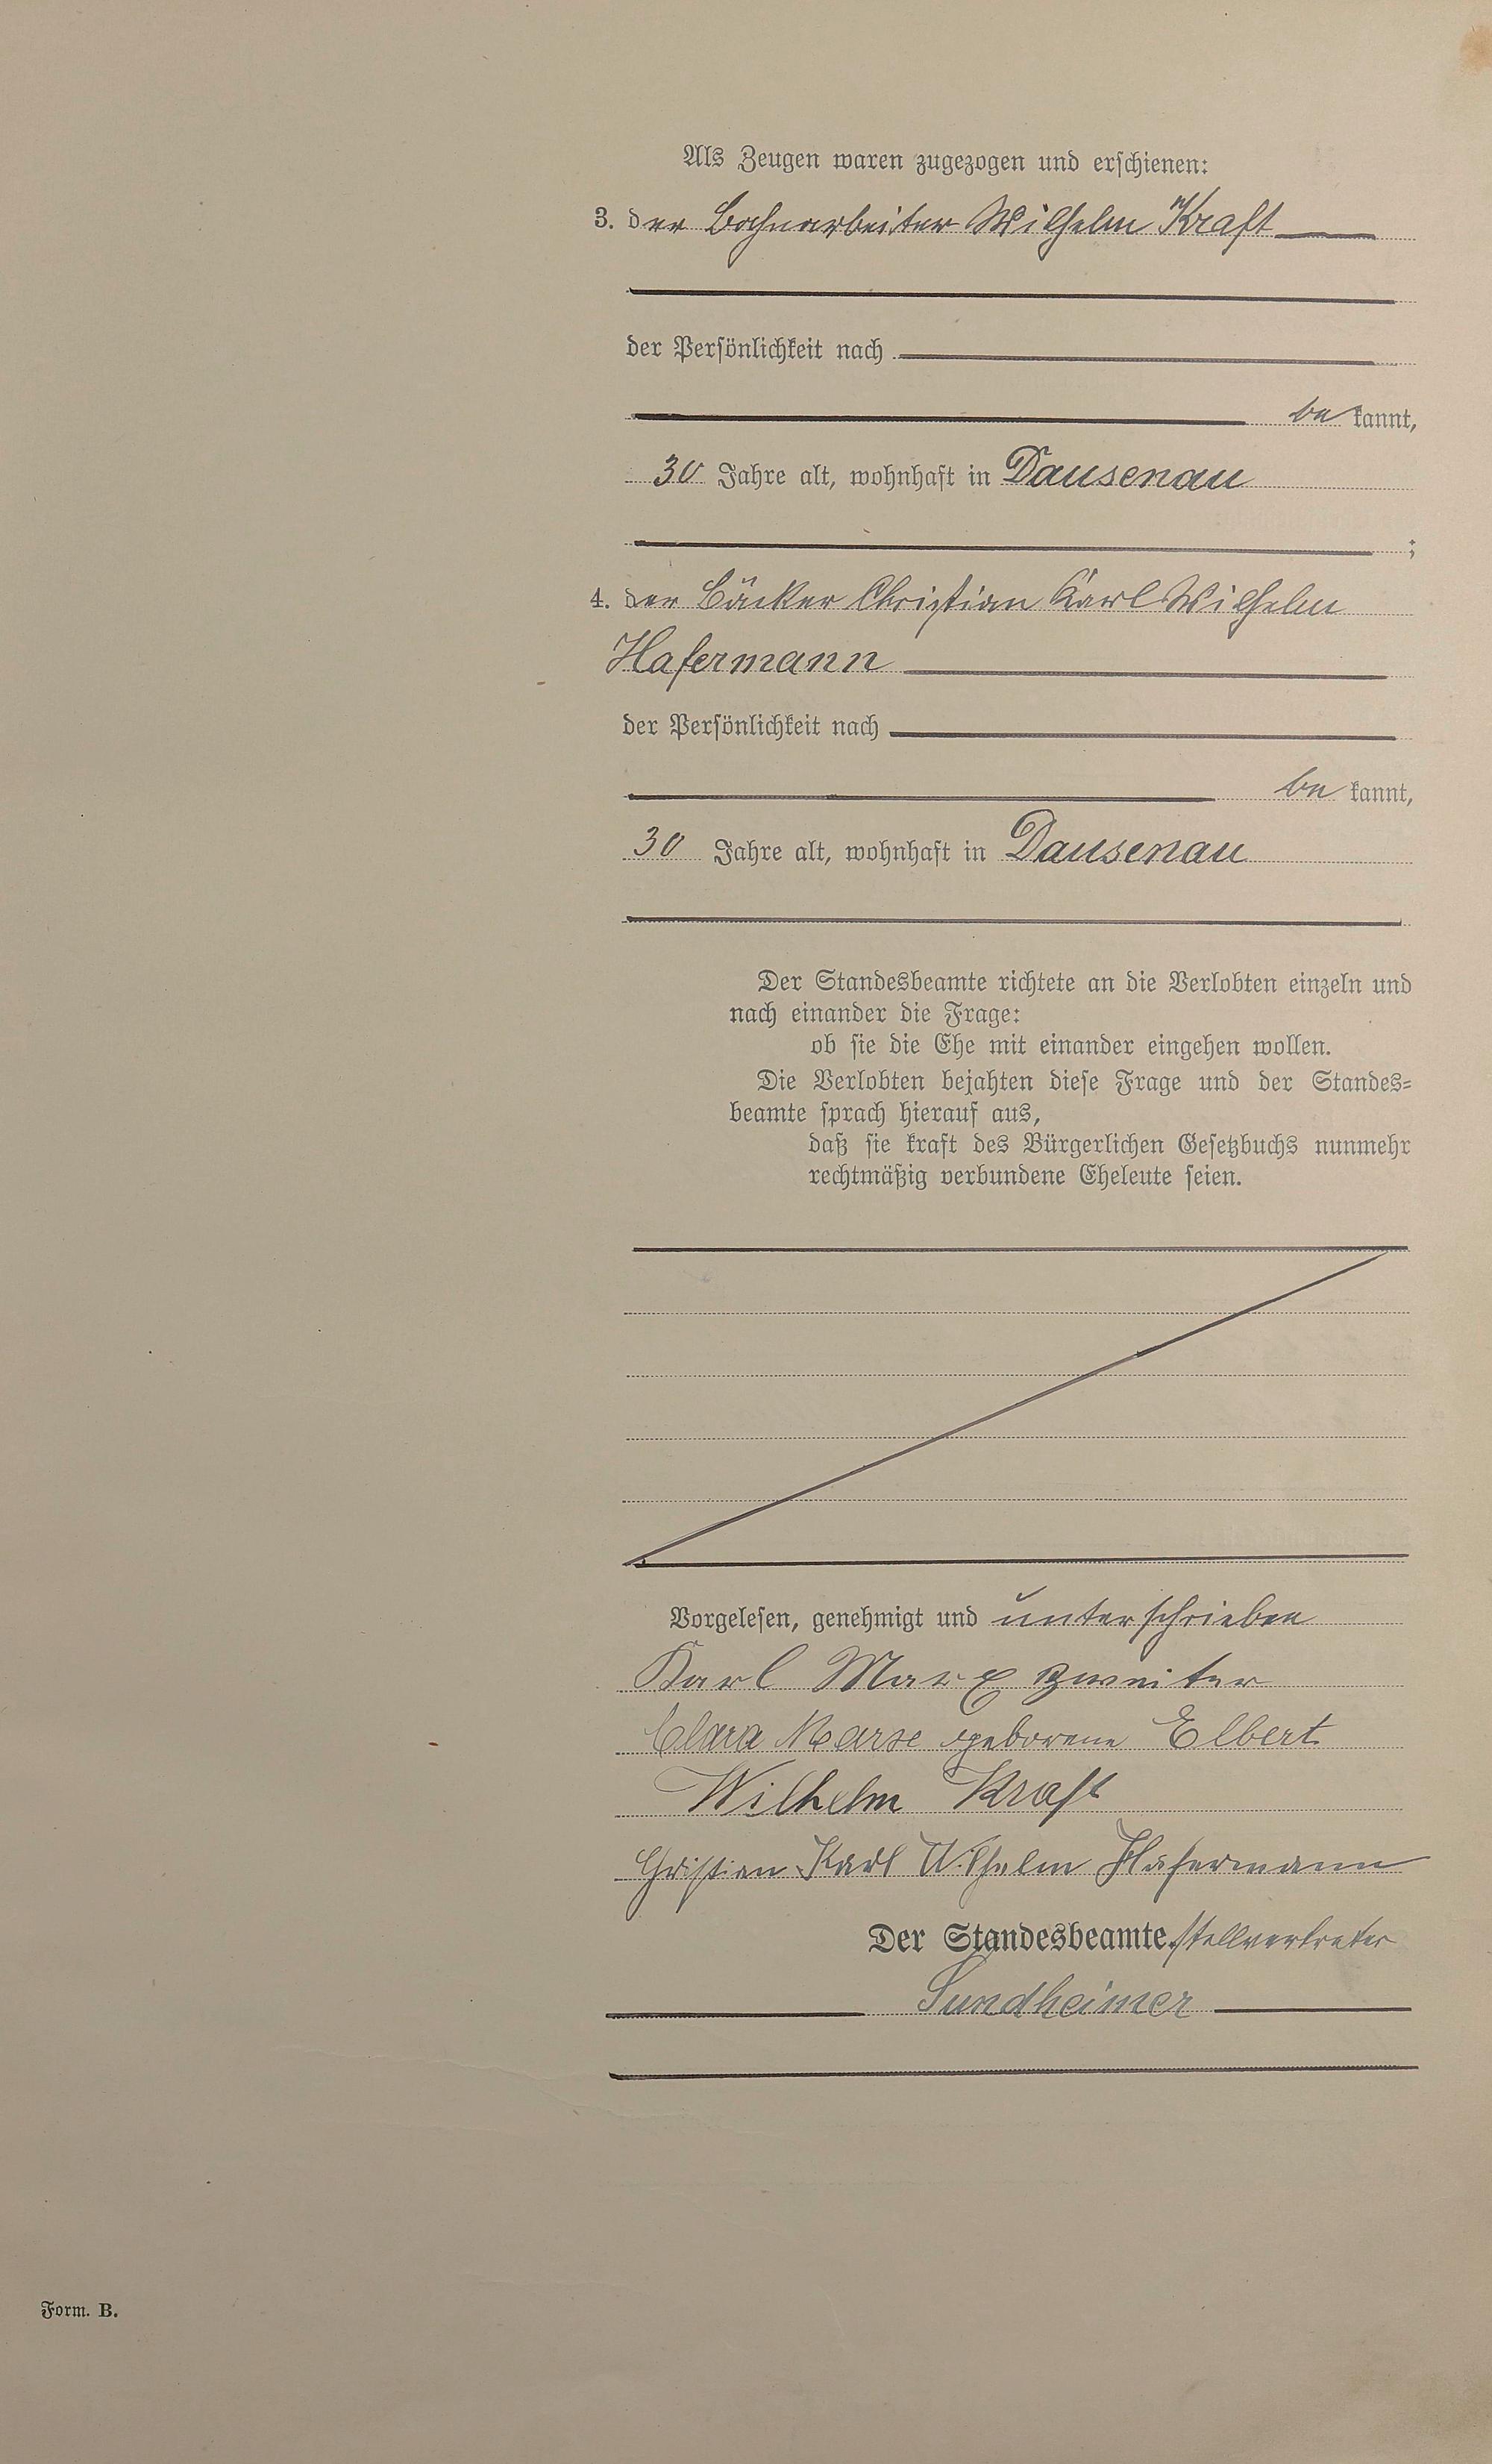 Als Zeugen waren zugezogen und erschienen:
3. der Bahnarbeiter Wilhelm Kraft
der Persönlichkeit nach
be kannt,
30 Jahre alt, wohnhaft in Dausenau
;
4. der Bäcker Christian Karl Wilhelm
Hafermann
der Persönlichkeit nach
be kannt,
30 Jahre alt, wohnhaft in Dausenau
Der Standesbeamte richtete an die Verlobten einzeln und
nach einander die Frage:
ob sie die Ehe mit einander eingehen wollen.
Die Verlobten bejahten diese Frage und der Standes=
beamte sprach hierauf aus,
daß sie kraft des Bürgerlichen Gesetzbuchs nunmehr
rechtmäßig verbundene Eheleute seien.
Vorgelesen, genehmigt und unterschrieben
Karl Marx zweiter
Clara Marx geborene Elbert
Wilhelm Kraft
Christian Karl Wilhelm Hafermann
Der Standesbeamte.stellvertreter
Sundheimer
Form. B.